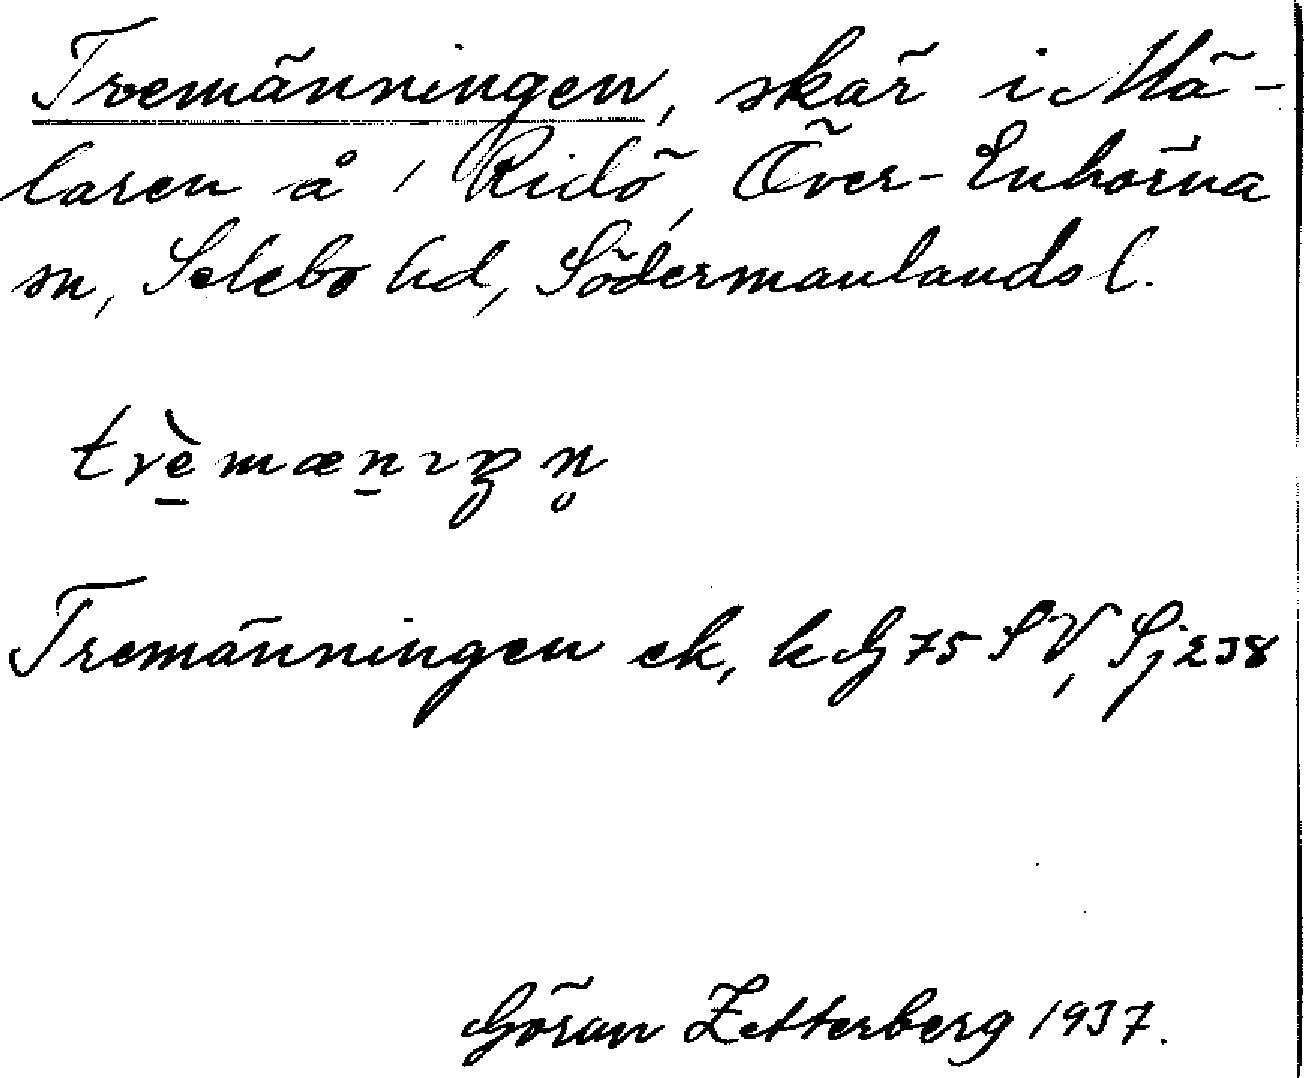 Tremänningen, skär i Mä-
laren å 1 Ridö, Över-Enhörna
sn, Selebo hd, Södermanlands l.
trèmænıŋn̥
Tremänningen ek, k G 75 SV, Sj 238
Göran Zetterberg 1937.